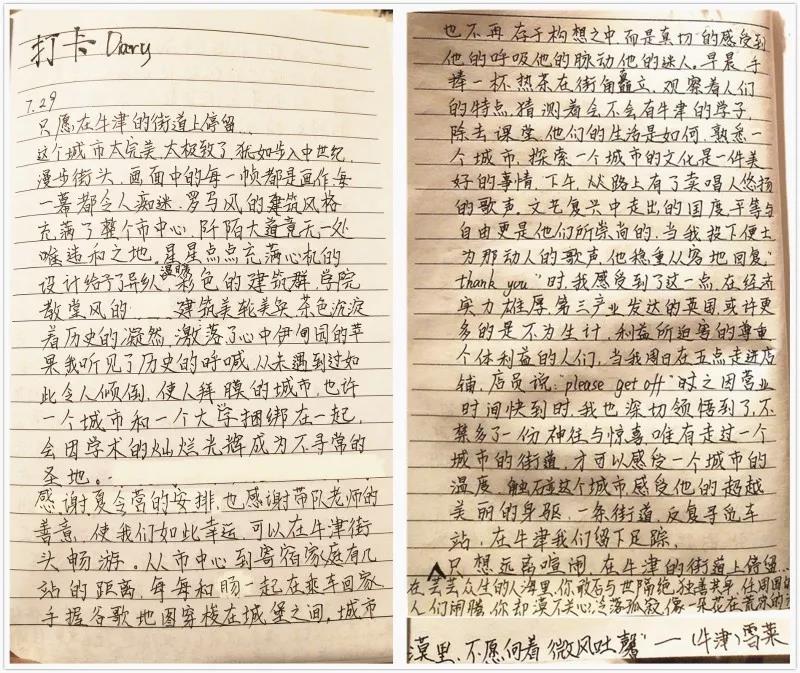 打卡 Diary
7.29
只愿在牛津的街道上停留...
这个城市太完美太极致了,犹如步入中世纪,
漫步街头,画面中的每一帧都是画作,每
一幕都令人痴迷。罗马风的建筑风格
充满了整个市中心,阡陌大道竟无一处
唯违和之地。星星点点充满心机的
设计给予了异纵温暖彩色的建筑群,学院
教堂风的......建筑美轮美奂,茶色沉淀
着历史的凝然,激落了心中伊甸园的苹
果,我听见了历史的呼喊,从未遇到过如
此令人倾倒,使人拜膜的城市,也许
一个城市和一个大学捆绑在一起,
会因学术的灿烂光辉成为不寻常的
圣地。
感谢夏令营的安排,也感谢带队老师的
善意,使我们如此幸运,可以在牛津街
头畅游。从市中心到寄宿家庭有几
站的距离,每每和肠一起在乘车回家,
手握谷歌地图穿梭在城堡之间,城市
也不再存于构想之中,而是真切的感受到
他的呼吸他的脉动他的迷人。早晨手
捧一杯热茶在街角矗立,观察着人们
的特点,猜测着会不会有牛津的学子,
除去课堂,他们的生活是如何,熟悉一
个城市,探索一个城市的文化是一件美
好的事情,下午,从路上有了卖唱人悠扬
的歌声。文艺复兴中走出的国度,平等与
自由更是他们所崇尚的,当我投下便士
为那动人的歌声,他稳重从容地回复"
thank you"时,我感受到了这一点,在经济
实力雄厚,第三产业发达的英国,或许更
多的是不为生计,利益所迫害的尊重
个体利益的人们,当我周日在五点走进店
铺,店员说:"please get off"时,之因营业
时间快到时,我也深切领悟到了,不
禁多了一份神往与惊喜,唯有走过一个
城市的街道,才可以感受一个城市的
温度,触碰这个城市感受他的超越
美丽的身躯,一条街道,反复寻觅车
站,在牛津我们留下足踪,
只想远离喧闹,在牛津的街道上停留...
在芸芸众生的人海里,你敢否与世隔绝,独善其身,任周围的
人们闹腾,你却漠不关心,冷落孤寂,像一朵花在荒凉的沙
漠里,不愿向着微风吐馨"——(牛津)雪莱